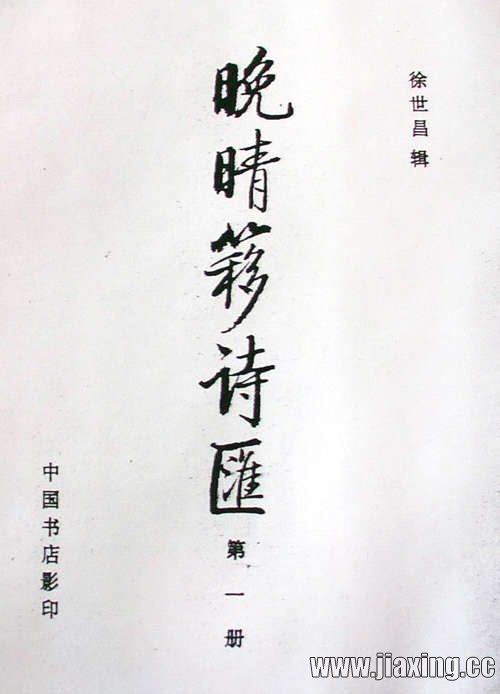 徐世昌 辑
晚晴簃诗匯
第一册
中国书店影印
www.jiaxing.cc